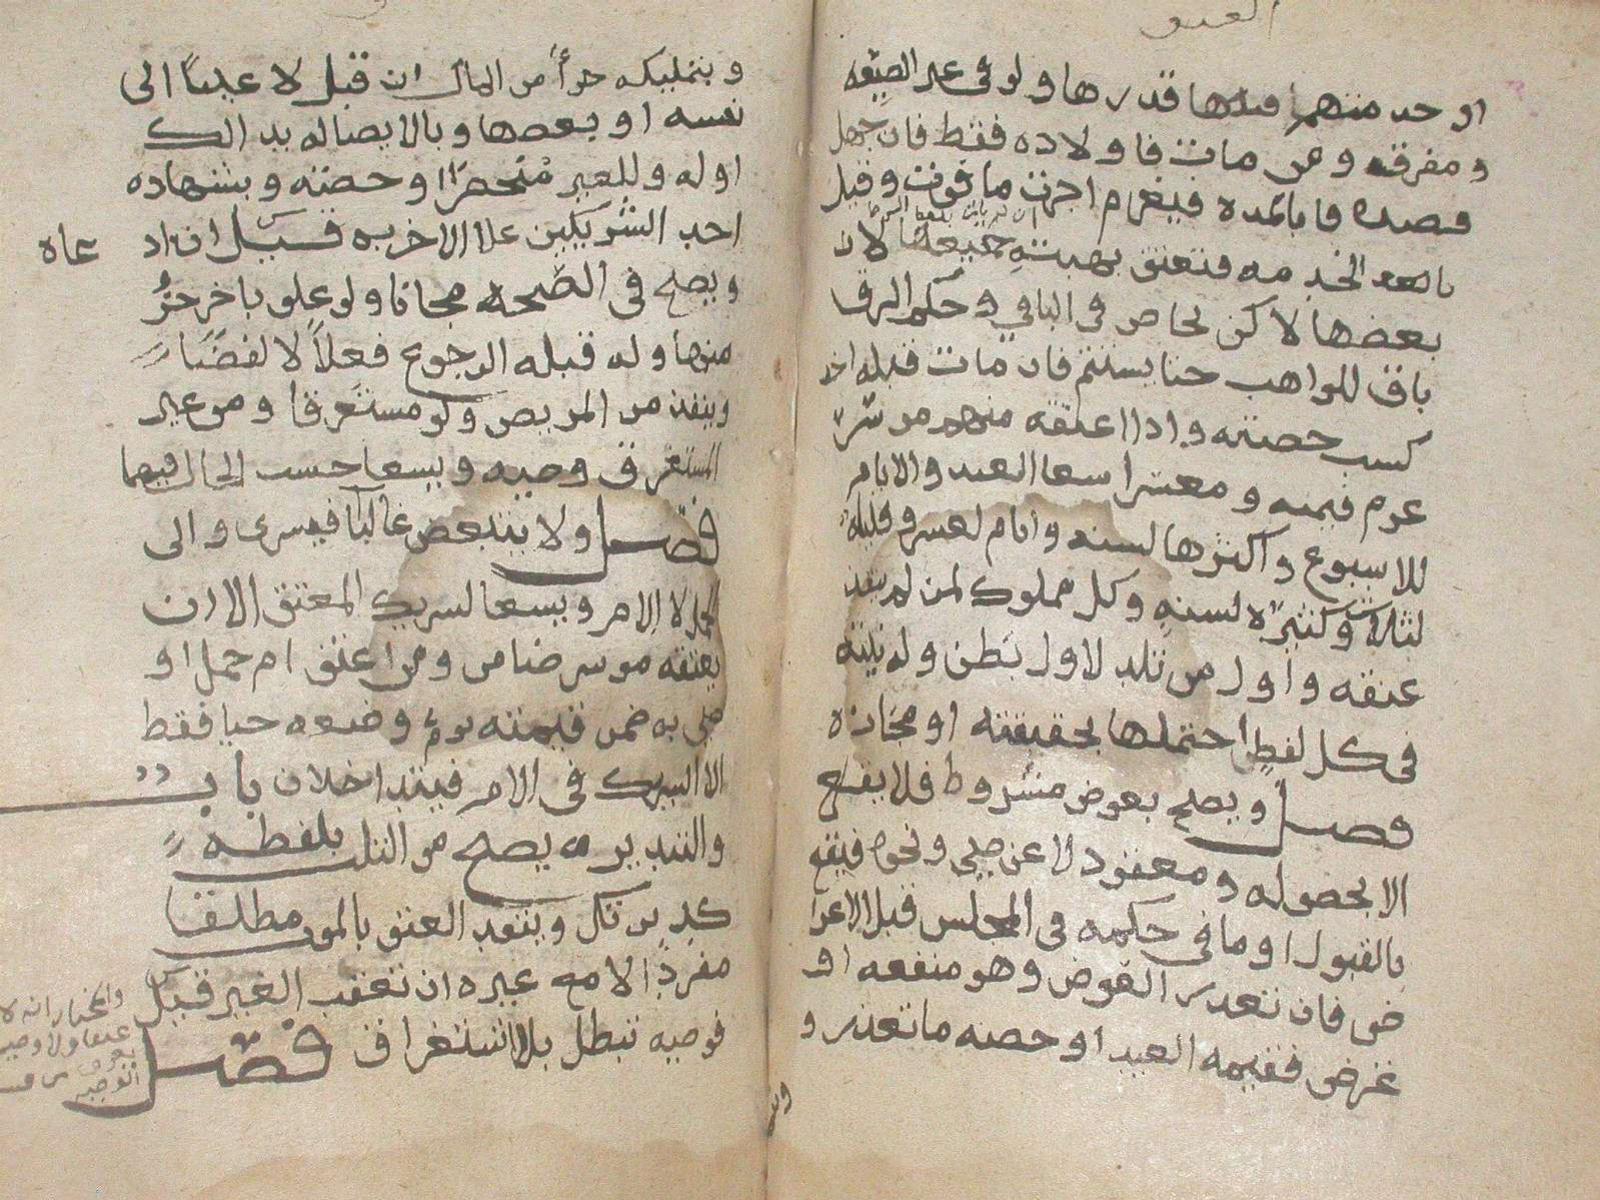 العتق
او حد منهما قدرها ولو في غير الصيغه
ومفرقه ومن مات فاولاده فقط فان جهل
قصده فبالمده فيغرم اجرت ما فوت وقيل
الخدمه فتعتق بهبته جميعها لا ان
بعضها لاكن يحاص في الباقي وحكم الرق
باق للواهب حتا يستتم فان مات قبله اخذ
كسب حصته واذا اعتقه منهم موسر
غرم قيمته ومعسرا سعا العبد والايام
للاسبوع واكثرها لسنه وايام لعشر وقليله
لثلاث وكثيره لسنه وكل مملوك لمن لم ينفذ
عتقه واول من تلد لاول بطن وله نيته
في كل لفظ احتملها بحقيقته او مجازه
فصل ويصح بعوض مشروط فلا يقع
الا بحصوله ومعقود لا عن صبي ونحوه فيقع
بالقبول او ما في حكمه في المجلس قبل الاعرا
ض فان تعذر العوض وهو منفعه او
غرض فقيمه العبد او حصه ما تعذر و
وبتمليكه جزأ من المال ان قبل لا عينا الى
نفسه او بعضها وبالايصا له بذالك
او له وللغير منحصرا او حصته وبشهاده
احد الشريكين علا الاخر به قيل ان اد
عاه
ويصح في الصحه مجانا ولو علق باخر جزء
منها وله قبله الرجوع فعلا لا لفظا
وينفذ من المريض ولو مستغرقا ومن غير
المستغرق وصيه ويسعا حسب الحال فيهما
فصل ولا يتبعض غالبا فيسري والى
الحمل لا الام ويسعا لشريك المعتق الا ان
يعتقه موسر ضامن ومن اعتق ام حمل او
صي به ضمن قيمته يوم وضعه حيا فقط
الا الشريك في الام فيتداخلان باب
والتدبير يصح من الثلث بلفظه
كدبرتك وبتقييد العتق بالموت مطلقا
مفردا لا مع غيره ان تعقب الغير قيل
فوصيه تبطل بالاستغراق فصل
والمختار انه لا